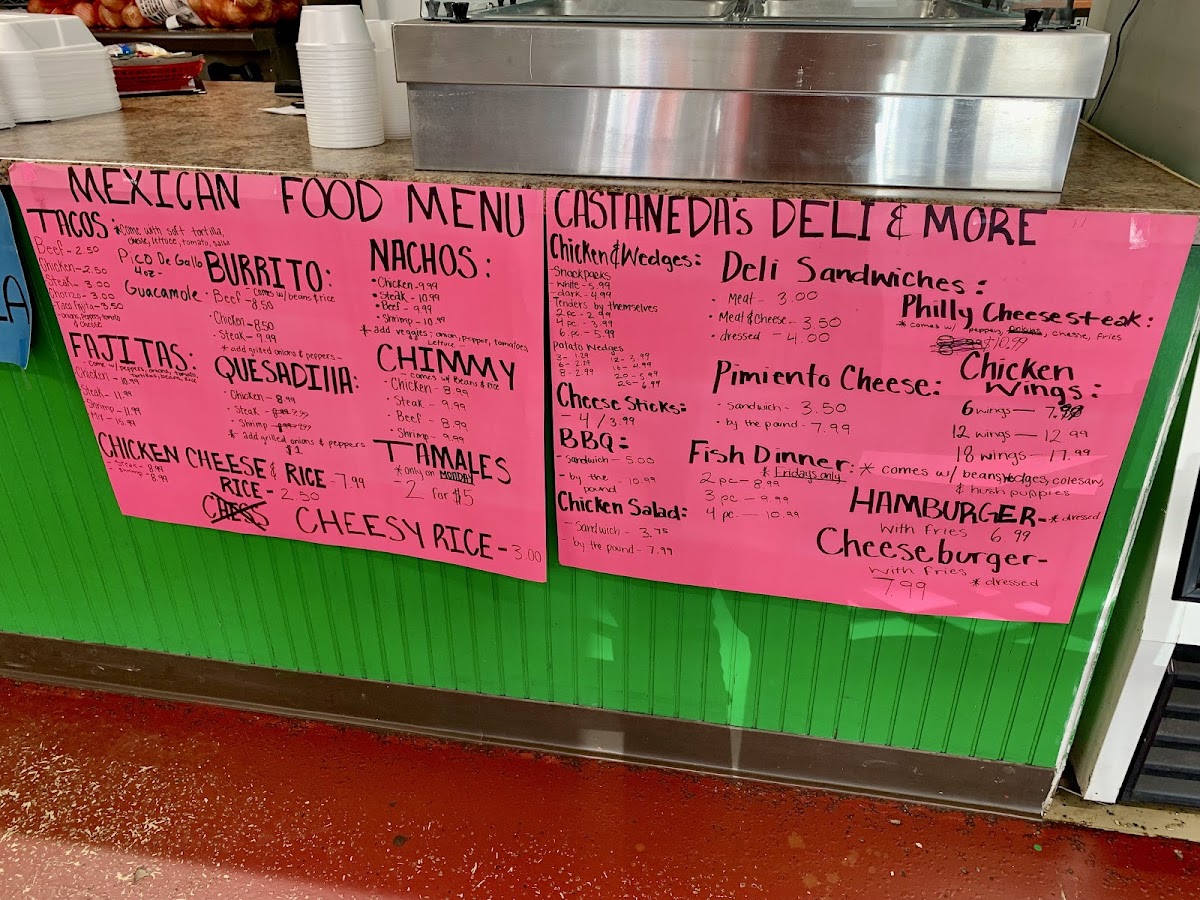 MEXICAN FOOD MENU
TACOS: *Come with soft tortilla,
cheese, lettuce, tomato, salsa
Beef - 2.50
Chicken - 2.50
Steak - 3.00
Chorizo - 3.00
Taco Fajita - 3.50
onions, peppers, tomato
& cheese
Pico De Gallo
4oz -
Guacamole -
FAJITAS:
come w/ peppers, onions, tomato
tortillas, beans, rice
Chicken - 10.99
Steak - 11.99
Shrimp - 11.99
Mix - 15.99
BURRITO:
- comes w/ beans & rice
Beef - 8.50
Chicken - 8.50
Steak - 9.99
* add grilled onions & peppers -
QUESADILLA:
Chicken - 8.99
Steak -
Shrimp -
* add grilled onions & peppers
$1
NACHOS:
• Chicken - 9.99
• Steak - 10.99
• Beef - 9.99
• Shrimp - 10.99
* add veggies: onion, pepper, tomatoes,
Lettuce -
CHIMMY
- comes w/ Beans & rice
• Chicken - 8.99
• Steak - 9.99
• Beef - 8.99
• Shrimp - 9.99
CHICKEN CHEESE & RICE - 7.99
- Steak - 8.99
- Shrimp - 8.99
RICE - 2.50
TAMALES
*only on MONDAY
- 2 for $5
CHEESY RICE - 3.00
CASTANEDA's DELI & MORE
Chicken & Wedges:
- Snackpacks
- white - 5.99
- dark - 4.99
Tenders by themselves
2 pc - 2.99
4 pc - 3.99
6 pc - 5.99
Potato Wedges
3 - 1.29 12 - 3.99
6 - 2.19 16 - 4.99
8 - 2.99 20 - 5.99
25 - 6.99
Cheese Sticks:
- 4 / 3.99
BBQ:
- Sandwich - 5.00
- by the pound - 10.99
Chicken Salad:
- Sandwich - 3.75
- by the pound - 7.99
Deli Sandwiches:
• Meat - 3.00
• Meat & Cheese - 3.50
• dressed - 4.00
Pimiento Cheese:
• Sandwich - 3.50
• by the pound - 7.99
Fish Dinner:
* Fridays only
* comes w/ beans, wedges, coleslaw,
& hush puppies
2 pc - 8.99
3 pc - 9.99
4 pc - 10.99
Philly Cheesesteak:
* comes w/ peppers, onions, cheese, fries
$10.99
Chicken
Wings:
6 wings — 7.99
12 wings — 12.99
18 wings — 17.99
HAMBURGER - * dressed
with fries 6.99
Cheeseburger -
with fries
7.99 * dressed